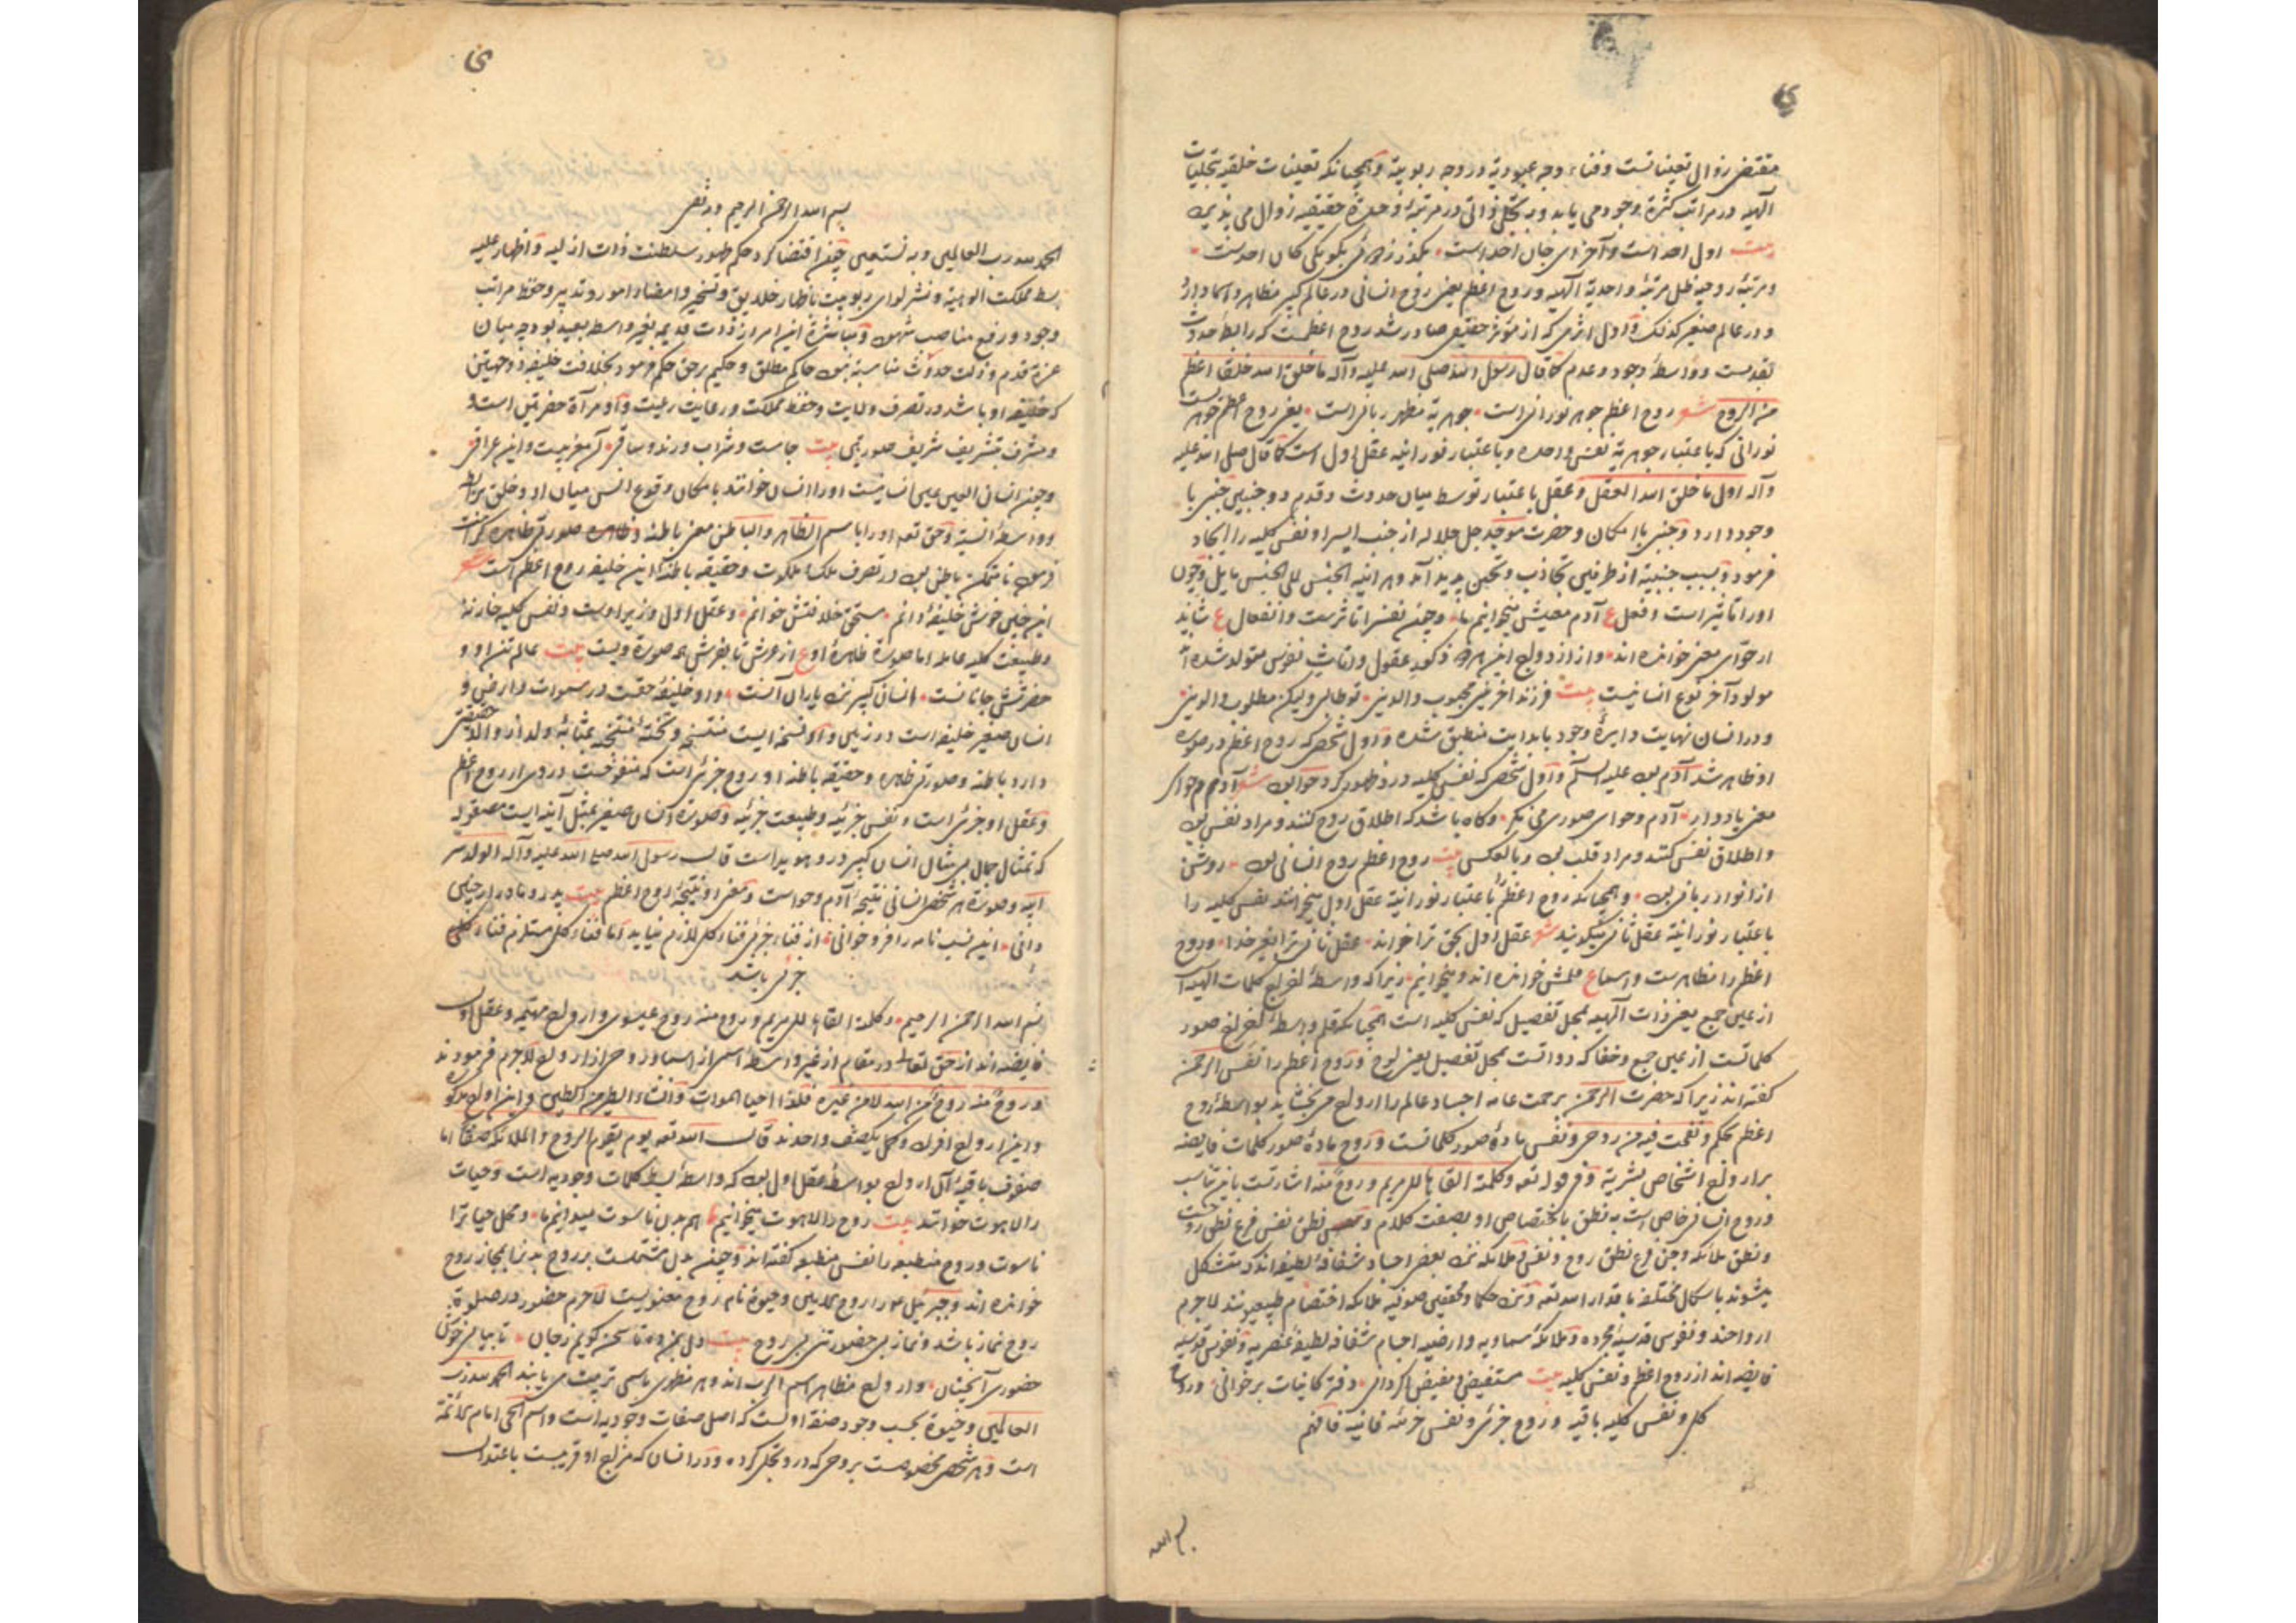 مقتضی زوال تعینات است وفناء وجه عبودیة در وجه ربوبیة وهمچنانکه تعینات خلقیه بتجلیات
آلهیه در مراتب کثرة وجود می یابد وبه تجلی ذاتی در مرتبهٔ وحدة حقیقیه زوال می پذیرد
بیت اول احد است وآخر ای جان احد است
ومرتبهٔ روحیه ظل مرتبهٔ واحدیة آلهیه وروح اعظم یعنی روح انسانی در عالم کبیر مظاهر واسما دارد
ودر عالم صغیر کذلک واول اثری که از مؤثر حقیقی صادر شد روح اعظمست که رابطهٔ حدوث
بقدمست وواسطهٔ وجود وعدم کما قال رسول الله صلی الله علیه وآله ما خلق الله خلقا اعظم
من الروح شعر روح اعظم جوهر نورانی است جوهریة مظهر ربانی است یعنی روح اعظم جوهریست
نورانی که باعتبار جوهریة نفس واحده وباعتبار نورانیه عقل اول است کما قال صلی الله علیه
وآله اول ما خلق الله العقل وعقل باعتبار توسط میان حدوث وقدم ذو جنبین جنبی با
وجود دارد وجنبی با امکان وحضرت موجد جل جلاله از جنب ایسر او نفس کلیه را ایجاد
فرمود وبسبب جنبیة از طرفین تجاذب وتحنن پدید آمد وهر آینه الجنس للی الجنس یمیل وچون
او را تاثیر است وفعل ع آدم معنیش میخوانیم ما وچون نفس را تاثرست وانفعال ع شاید
ار حوای معنی خوانده اند واز ازدواج این هر دو ذکور عقول واناث نفوس متولد شده اند
مولود آخر نوع انسانیست بیت فرزند آخرین محبوب والدین تو طالبی ولیکن مطلوب والدین
ودر انسان نهایت دایرهٔ وجود با بدایت منطبق شده واول شخصی که روح اعظم در صورت
او ظاهر شد آدم بود علیه السلم واول شخصی که نفس کلیه در او ظهور کرد حوا بود شعر آدم وحوای
معنی یاد دار آدم وحوای صوری می نگر وگاه باشد که اطلاق روح کنند ومراد نفس بود
واطلاق نفس کنند ومراد قلب بود وبالعکس بیت روح اعظم روح انسانی بود روشن
از انوار ربانی بود وهمچنانکه روح اعظم را باعتبار نورانیة عقل اول میخوانند نفس کلیه را
باعتبار نورانیة عقل ثانی میگویند شعر عقل اول بحق ترا خواند عقل ثانی ترا بغیر خدا وروح
اعظم را مظاهرست واسما ع قلمش خوانده اند ومیخوانیم زیرا که واسطهٔ اخراج کلمات الهیه است
از عین جمع یعنی ذات آلهیه بمحل تفصیل که نفس کلیه است همچنانکه قلم واسطهٔ اخراج صور
کلماتست از عین جمع وخفا که دواتست بمحل تفصیل یعنی لوح وروح اعظم را نفس الرحمن
گفته اند زیرا که حضرت الرحمن برحمت عامه اجساد عالم را ارواح می بخشاید بواسطهٔ روح
اعظم بحکم ونفخت فیه من روحی ونفس مادهٔ صور کلماتست وروح مادهٔ صور کلمات فایضه
بر ارواح اشخاص بشریة وفی قوله تعه وکلمته القاها للی مریم وروح منه اشارتست باین تناسب
وروح انسانی خاص است به نطق باختصاص او بصفت کلام ونطق نفس فرع نطق روحست
ونطق ملائکه وجن فرع نطق روح ونفس وملائکه نزد بعضی اجساد شفافهٔ لطیفه اند که متشکل
میشوند باشکال مختلفه باقدار الله تعه ونزد حکما ومحققین صوفیه ملائکه اختصام طبیعی ندارند لاجرم
ارواحند ونفوس قدسیهٔ مجرده وملائکهٔ سماویه وارضیه اجسام شفافه لطیفهٔ عنصریه ونفوس قدسیه
فایضه اند از روح اعظم ونفس کلیه بیت مستفیض ومفیض اگر دانی دفتر کاینات برخوانی وروح
کلی ونفس کلیه باقیه وروح جزئی ونفس جزئیه فانیه فافهم
بسم الله
بسم الله الرحمن الرحیم وبه ثقتی
الحمد لله رب العالمین وبه نستعین چون اقتضا کرد حکم ظهور سلطنت ذات ازلیه واظهار علیه
بسط مملکت الوهیة ونشر لوای ربوبیت باظهار خلایق وتسخیر وامضاء امور وتدبیر وحفظ مراتب
وجود ورفع مناصب شهود ومباشرة این امر از ذات قدیمه بغیر واسطه بعید بود چه میان
عزة قدم وذلت حدوث مناسبة نبود حاکم مطلق وحکیم برحق حکم فرمود بخلافت خلیفهٔ ذو جهتین
که خلیفه او باشد در تصرف ولایت وحفظ مملکت ورعایت رعیت واو مرآة حضرتین است
ومشرف بتشریف شریف صورتی بیت جامست وشراب ورند وساقی آن مغربیست واین عراقی
وچون انسانی العین عین انسانیست او را انسان خوانند بامکان وقوع انس میان او وخلق برابطه
وواسطهٔ انسیة وحق تعه او را با سم الظاهر والباطن معنی باطنه وظاهره صورتی ظاهره کرامت
فرمود تا متمکن باطن بود در تصرف ملک ملکوت وحقیقه باطنه این خلیفه روح اعظم است شعر
این چنین خوش خلیفهٔ دانم مستحق خلافتش خوانم وعقل اول وزیر اوست ونفس کلیه خازنهٔ
وطبیعت کلیه عامله اما صورة ظاهرهٔ او ع از عرش تا بفرش همه صورة ویست بیت عالم تن او و
حضرتش جانانست انسان کبیر نزد یاران آنست واو خلیفهٔ حقست در سموات وارضین و
انسان صغیر خلیفه است در زمین واو نسخه ایست منتسخه ونتیجهٔ منتجه بمثابهٔ ولد از والد حقیقتی
دارد باطنه وصورتی ظاهره وحقیقه باطنه او روح جزئی است که منفوخست در وی از روح اعظم
وعقل او جزئی است ونفس جزئیه وطبیعت جزئیه وصورة انسان صغیر بمثل آینه ایست مصقوله
که تمثال جمال بی مثال انسان کبیر در او هویداست قال رسول الله صلی الله علیه وآله الولد سر
ابیه وصورة هر شخص انسانی نتیجهٔ آدم وحواست ومعنی او نتیجهٔ روح اعظم بیت پدر ومادر ار چنین
دانی این نسب نامه را فرو خوانی از فناء جزئی فناء کل لازم نیاید اما فناء کل مستلزم فناء کلی
جزئی باشد
بسم الله الرحمن الرحیم وکلمته القاها للی مریم وروح منه روح عیسوی وارواح مهیمه وعقل اول
فایضه اند از حق تعالی در مقام از غیر واسطهٔ اسمی از اسما وروحی از ارواح لاجرم فرمودند
وروح منه روح من الله لا من غیره فلذا احیا الموات وانشاء الطیر من الطین واین ارواح مذکوره
واین ارواح افراد وکل یکصف واحدند قال الله تعه یوم یقوم الروح والملائکة صفا اما
صفوف باقیهٔ آن ارواح بواسطهٔ عقل اول بود که واسطهٔ بسط کلمات وجودیه است وحیات
را لاهوت خوانند بیت روح را لاهوت میخوانیم ما هم بدن ناسوت میدانیم ما ومحل حیا ترا
ناسوت وروح منطبعه را نفس منطبعه گفته اند وچون بدن مشتملست بر روح بدنها بمجاز روح
خوانده اند وجبرئیل علم را روح للامین وحیوة نام روح معنویست لاجرم حضور در صلوة
روح نماز باشد ونماز بی حضور تنی بی روح بیت دلی بمن ده تا سخن گویم ز جان تا بیابی خوش
حضوری آنچنان وارواح مظاهر اسم الرب اند وهر مظهری باسمی تربیت می یابند الحمد لله رب
العالمین وحیوة بحسب وجود صفة اولست که اصل صفات وجودیه است واسم الحی امام للائمة
است وهر شخص مخصوصست بروحی که در او تجلی کرده ودر انسان که مزاج او قریبست باعتدال